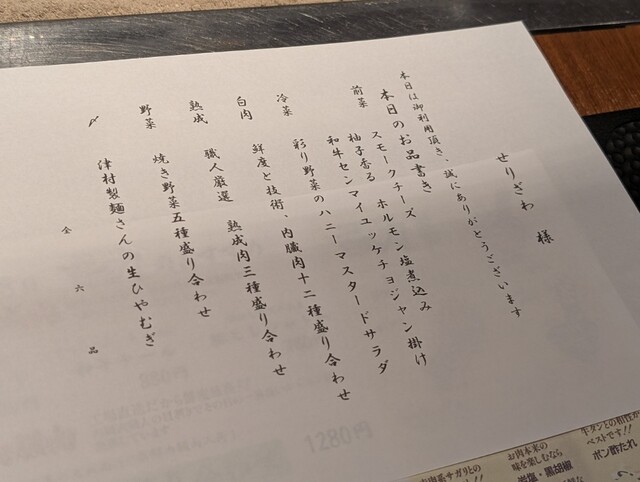 せりざわ 様
本日は御利用頂き、誠にありがとうございます
本日のお品書き
前菜 スモークチーズ ホルモン塩煮込み
柚子香る 和牛センマイユッケチョジャン掛け
冷菜 彩り野菜のハニーマスタードサラダ
白肉 鮮度と技術、内臓肉十二種盛り合わせ
熟成 職人厳選 熟成肉三種盛り合わせ
野菜 焼き野菜五種盛り合わせ
〆 津村製麺さんの生ひやむぎ
全六品
1280円
牛タンとの相性が
ベストです!!
ポン酢たれ
お肉本来の
味を楽しむなら
岩塩・黒胡椒